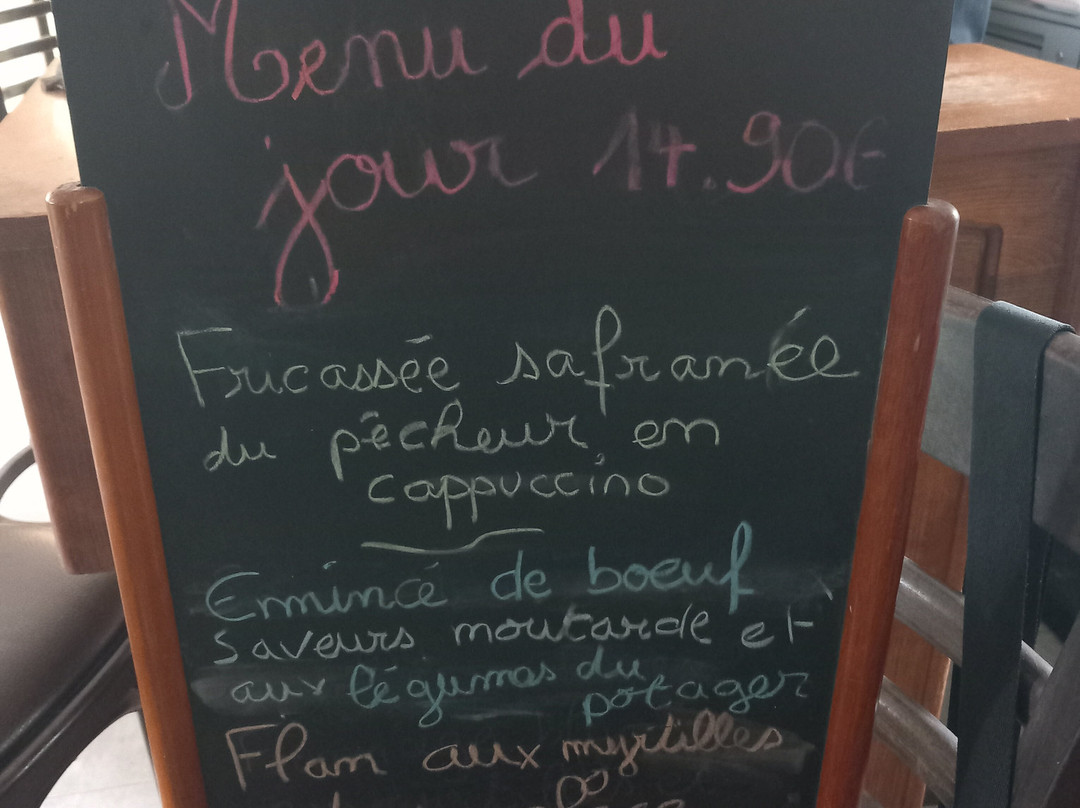 Menu du
jour 14.90€
Fricassée safranée
du pêcheur en
cappuccino
Emincé de boeuf
saveurs moutarde et
aux légumes du
potager
Flan aux myrtilles